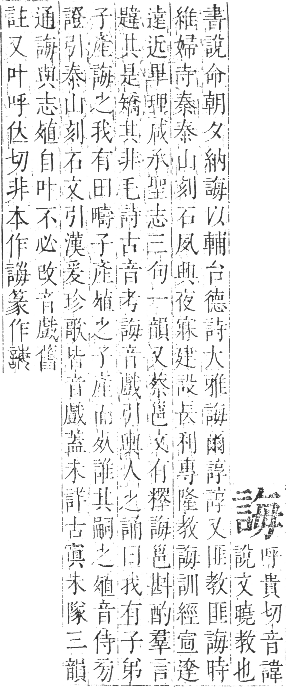 誨
呼貴切音諱
說文曉教也
書說命朝夕納誨以輔台德詩大雅誨爾諄諄又匪教匪誨時
維婦寺秦泰山刻石夙興夜寐建設長利專隆教誨訓經宣達
遠近畢理咸承聖志三句一韻又蔡邕文有釋誨邕斟酌羣言
韙其是矯其非毛詩古音考誨音戲引輿人之誦曰我有子弟
子產誨之我有田疇子產殖之子產而死誰其嗣之殖音侍旁
證引泰山刻石文引漢爰珍歌皆音戲蓋未詳古寘未隊三韻
通誨與志殖自叶不必改音戲舊
註又叶呼仳切非本作誨篆作𧩦